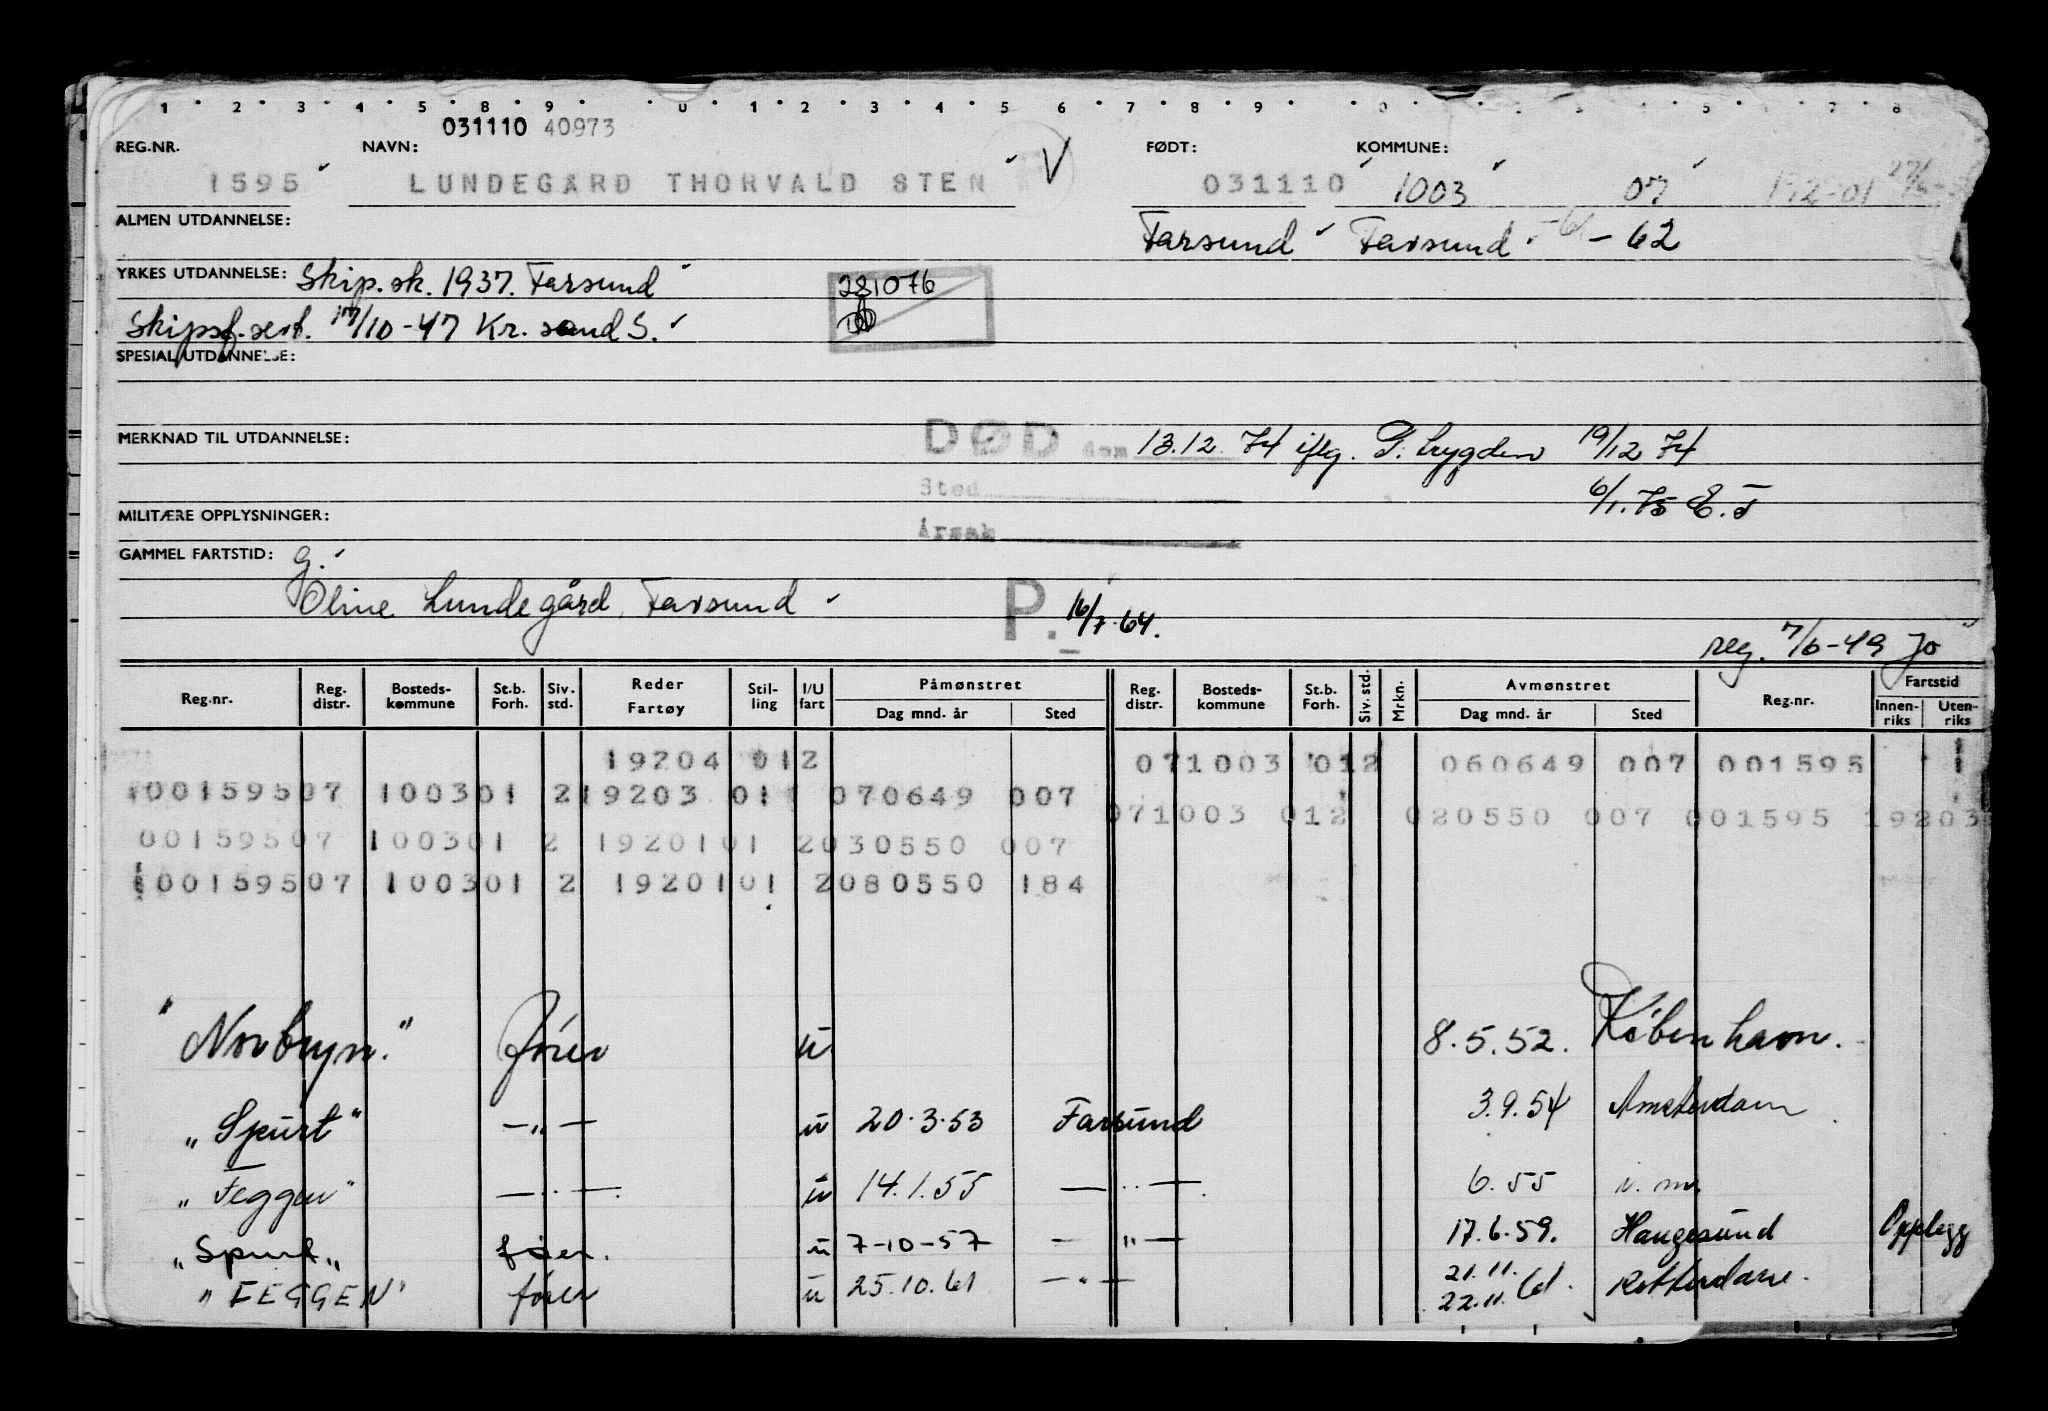 1 2 3 4 5 8 9 0 1 2 3 4 5 6 7 8 9
031110 40973
REG.NR. NAVN: FØDT: KOMMUNE:
1595 LUNDEGÅRD THORVALD STEN V 031110 1003 07 192-01
ALMEN UTDANNELSE: Farsund Farsund -61 - 62
YRKES UTDANNELSE: Skip.sk. 1937. Farsund 281076
Skipsf.sert. 17/10-47 Kr.sand S.
SPESIAL UTDANNELSE:
MERKNAD TIL UTDANNELSE: DØD den 13.12.74 iflg. P. trygden 19/12 74
Sted 6/1.75 E.T
MILITÆRE OPPLYSNINGER: Årsak
GAMMEL FARTSTID: g.
Oline Lundegård, Farsund P. 16/7.64.
reg. 7/6-49 Jo
Reg.nr. Reg. distr. Bosteds-kommune St.b. Forh. Siv. std. Reder Fartøy Stil-ling I/U fart Påmønstret Dag mnd. år Sted Reg. distr. Bosteds-kommune St.b. Forh. Siv. std. Mrkn. Avmønstret Dag mnd. år Sted Reg.nr. Fartstid Innen-riks Uten-riks
19204 012 071003 012 060649 007 001595 1
00159507 100301 219203 01 070649 007
071003 012 020550 007 001595 19203
00159507 100301 2 1920101 2030550 007
00159507 100301 2 1920101 2080550 184
"Norbryn." fører u 8.5.52. København.
"Spurt" -"- u 20.3.53 Farsund 3.9.54 Amsterdam
"Feggen" -"- u 14.1.55 -"- 6.55 u. m.
"Spurt" fører. u 7-10-57 -"- 17.6.59. Haugesund Opplegg
"FEGGEN" fører u 25.10.61 -"- 21.11. 22.11. 61. Rotterdam.